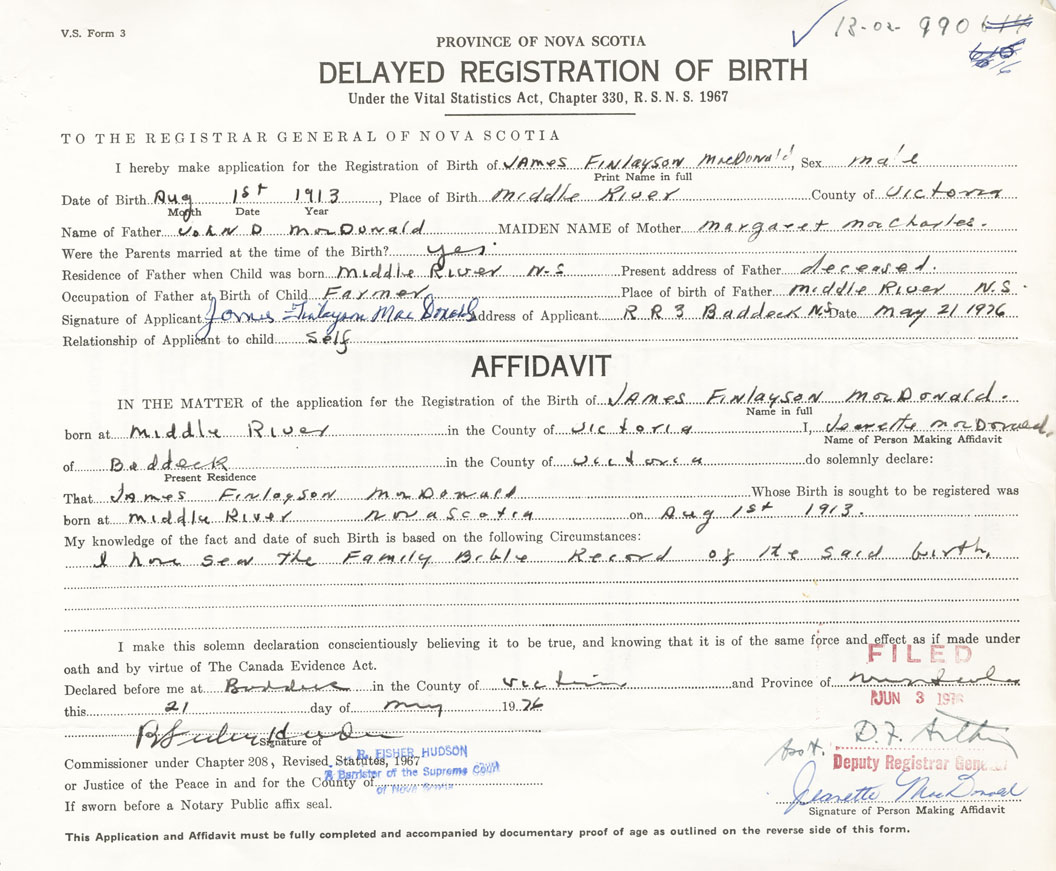 V.S. Form 3
13-02 990
PROVINCE OF NOVA SCOTIA
DELAYED REGISTRATION OF BIRTH
Under the Vital Statistics Act, Chapter 330, R. S. N. S. 1967
TO THE REGISTRAR GENERAL OF NOVA SCOTIA
I hereby make application for the Registration of Birth of James Finlayson MacDonald, Sex male
Print Name in full
Date of Birth Aug 1st 1913, Place of Birth Middle River County of Victoria
Month Date Year
Name of Father John D MacDonald MAIDEN NAME of Mother Margaret MacCharles.
Were the Parents married at the time of the Birth? yes
Residence of Father when Child was born Middle River N.S Present address of Father deceased.
Occupation of Father at Birth of Child Farmer Place of birth of Father Middle River N.S.
Signature of Applicant James Finlayson MacDonald Address of Applicant R R 3 Baddeck N.S Date May 21 1976
Relationship of Applicant to child Self
AFFIDAVIT
IN THE MATTER of the application for the Registration of the Birth of James Finlayson MacDonald.
Name in full
born at Middle River in the County of Victoria I, Jeanette MacDonald,
Name of Person Making Affidavit
of Baddeck in the County of Victoria do solemnly declare:
Present Residence
That James Finlayson MacDonald Whose Birth is sought to be registered was
born at Middle River Nova Scotia on Aug 1st 1913.
My knowledge of the fact and date of such Birth is based on the following Circumstances:
I have seen the Family Bible Record of the said birth.
I make this solemn declaration conscientiously believing it to be true, and knowing that it is of the same force and effect as if made under
oath and by virtue of The Canada Evidence Act.
FILED
Declared before me at Baddeck in the County of Victoria and Province of Nova Scotia
JUN 3 1976
this 21 day of May 1976
Signature of
R. FISHER HUDSON
Commissioner under Chapter 208, Revised Statutes, 1967
A Barrister of the Supreme Court
of Nova Scotia
Deputy Registrar General
or Justice of the Peace in and for the County of
If sworn before a Notary Public affix seal.
Jeanette MacDonald
Signature of Person Making Affidavit
This Application and Affidavit must be fully completed and accompanied by documentary proof of age as outlined on the reverse side of this form.